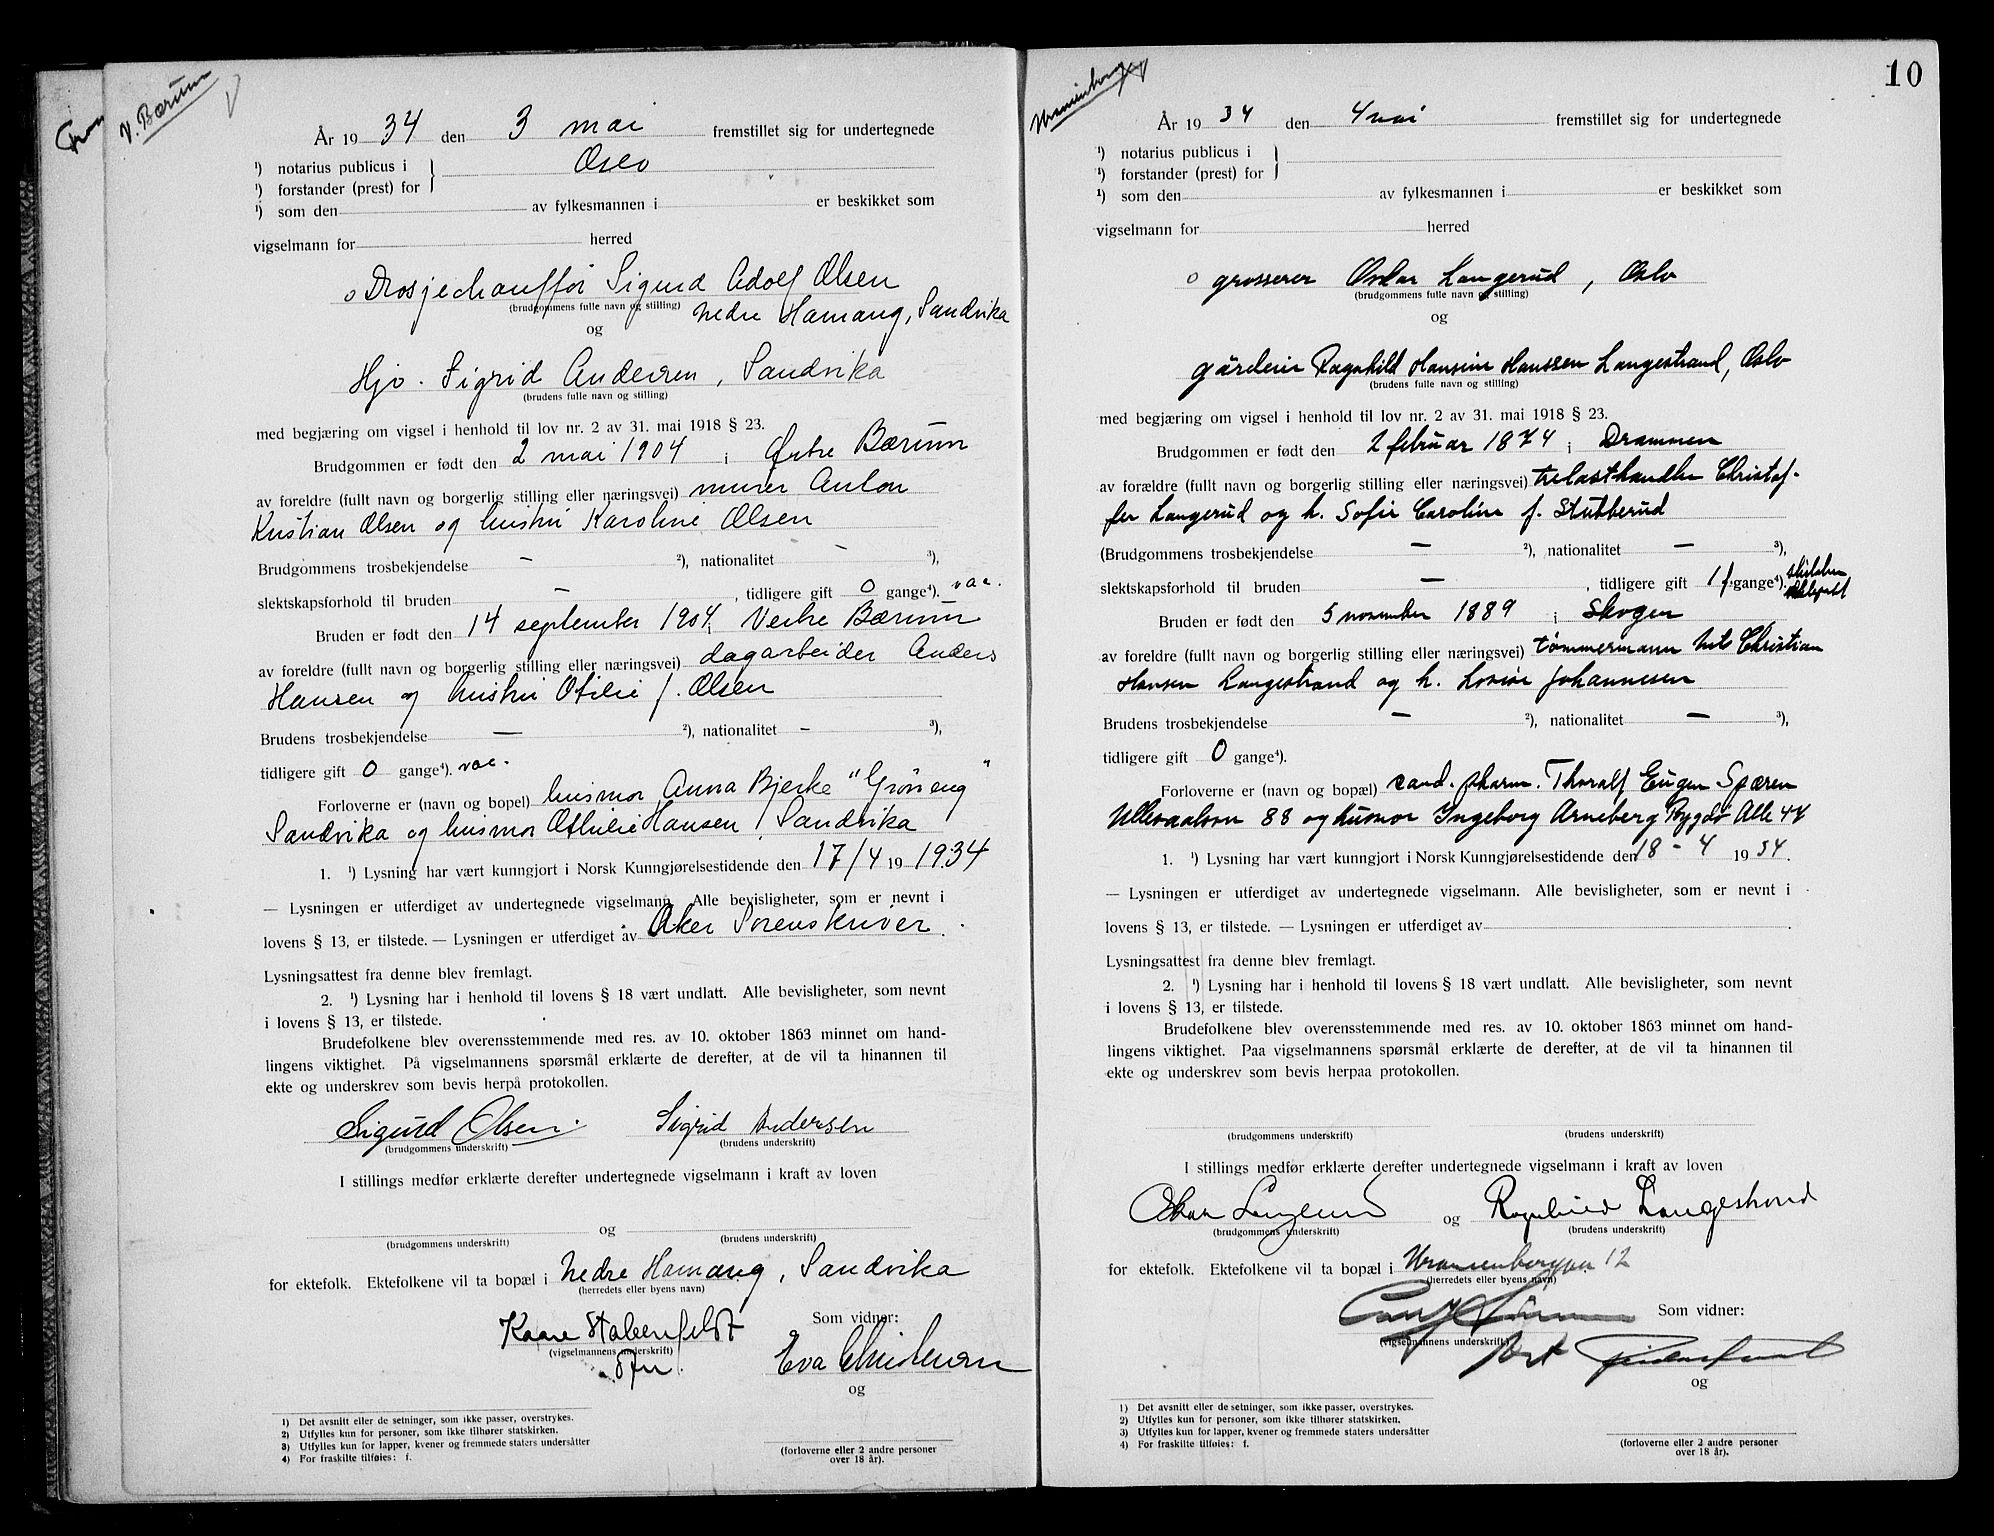 V. Bærum
År 1934 den 3 mai fremstillet sig for undertegnede
¹) notarius publicus i Oslo
¹) forstander (prest) for
¹) som den av fylkesmannen i er beskikket som
vigselmann for herred
o Drosjechauffør Sigurd Adolf Olsen
(brudgommens fulle navn og stilling) Nedre Hamang, Sandvika
og
Hjv. Sigrid Andersen, Sandvika
(brudens fulle navn og stilling)
med begjæring om vigsel i henhold til lov nr. 2 av 31. mai 1918 § 23.
Brudgommen er født den 2 mai 1904 i Østre Bærum
av foreldre (fullt navn og borgerlig stilling eller næringsvei) murer Anton
Kristian Olsen og hustru Karoline Olsen
Brudgommens trosbekjendelse — ²), nationalitet — ³),
slektskapsforhold til bruden — , tidligere gift 0 gange⁴). vac.
Bruden er født den 14 september 1904 i Vestre Bærum
av foreldre (fullt navn og borgerlig stilling eller næringsvei) dagarbeider Anders
Hansen og hustru Otilie f. Olsen
Brudens trosbekjendelse — ²), nationalitet — ³),
tidligere gift 0 gange⁴). vac.
Forloverne er (navn og bopel) husmor Anna Bjerke "Grøneng"
Sandvika og husmor Othilie Hansen, Sandvika
1. ¹) Lysning har vært kunngjort i Norsk Kunngjørelsestidende den 17/4 19 1934
— Lysningen er utferdiget av undertegnede vigselmann. Alle bevisligheter, som er nevnt i
lovens § 13, er tilstede. — Lysningen er utferdiget av Aker Sorenskriver.
Lysningsattest fra denne blev fremlagt.
2. ¹) Lysning har i henhold til lovens § 18 vært undlatt. Alle bevisligheter, som nevnt
i lovens § 13, er tilstede.
Brudefolkene blev overensstemmende med res. av 10. oktober 1863 minnet om hand-
lingens viktighet. På vigselmannens spørsmål erklærte de derefter, at de vil ta hinannen til
ekte og underskrev som bevis herpå protokollen.
Sigurd Olsen. Sigrid Andersen
(brudgommens underskrift) (brudens underskrift)
I stillings medfør erklærte derefter undertegnede vigselmann i kraft av loven
og
(brudgommens underskrift) (brudens underskrift)
for ektefolk. Ektefolkene vil ta bopæl i Nedre Hamang, Sandvika
(herredets eller byens navn)
Kaare Stabenfeldt Som vidner:
(vigselmannens underskrift) Eva Christensen
og
1) Det avsnitt eller de setninger, som ikke passer, overstrykes.
2) Utfylles kun for personer, som ikke tilhører statskirken.
3) Utfylles kun for lapper, kvener og fremmede staters undersåtter
4) For fraskilte tilføies: f.
(forloverne eller 2 andre personer
over 18 år).
10
Uranienborg
År 1934 den 4 mai fremstillet sig for undertegnede
¹) notarius publicus i
¹) forstander (prest) for
¹) som den av fylkesmannen i er beskikket som
vigselmann for herred
o grosserer Oskar Langerud, Oslo
(brudgommens fulle navn og stilling)
og
gårdeier Ragnhild Hansine Hanssen Langestrand, Oslo
(brudens fulle navn og stilling)
med begjæring om vigsel i henhold til lov nr. 2 av 31. mai 1918 § 23.
Brudgommen er født den 2 februar 1874 i Drammen
av forældre (fullt navn og borgerlig stilling eller næringsvei) trelasthandler Christof-
fer Langerud og h. Sofie Caroline f. Stubberud
(Brudgommens trosbekjendelse — ²), nationalitet — ³),
slektskapsforhold til bruden — , tidligere gift 1 f. gange⁴).
Bruden er født den 5 november 1889 i Skoger
av foreldre (fullt navn og borgerlig stilling eller næringsvei) tømmermann Nils Christian
Hansen Langestrand og h. Lovise Johannesen
Brudens trosbekjendelse — ²), nationalitet — ³),
tidligere gift 0 gange⁴).
Forloverne er (navn og bopæl) cand. pharm. Thoralf Eugen Spæren
Ullevaalsvn 88 og husmor Ingeborg Arneberg Bygdø Alle 44
1. ¹) Lysning har vært kunngjort i Norsk Kunngjørelsestidende den 18-4 1934.
— Lysningen er utferdiget av undertegnede vigselmann. Alle bevisligheter, som er nevnt i
lovens § 13, er tilstede. — Lysningen er utferdiget av
Lysningsattest fra denne blev fremlagt.
2. ¹) Lysning har i henhold til lovens § 18 vært undlatt. Alle bevisligheter, som nevnt
i lovens § 13, er tilstede.
Brudefolkene blev overensstemmende med res. av 10. oktober 1863 minnet om hand-
lingens viktighet. Paa vigselmannens spørsmål erklærte de derefter, at de vil ta hinannen til
ekte og underskrev som bevis herpaa protokollen.
(brudgommens underskrift) (brudens underskrift)
I stillings medfør erklærte derefter undertegnede vigselmann i kraft av loven
Oskar Langerud og Ragnhild Langestrand
(brudgommens underskrift) (brudens underskrift)
for ektefolk. Ektefolkene vil ta bopæl i Uranienborgvn 12
(herredets eller byens navn)
Som vidner:
(vigselmannens underskrift)
og
1) Det avsnitt eller de setninger, som ikke passer, overstrykes.
2) Utfylles kun for personer, som ikke tilhører statskirken.
3) Utfylles kun for lapper, kvener og fremmede staters undersåtter
4) For fraskilte tilføies: f.
(forloverne eller 2 andre personer
over 18 år).